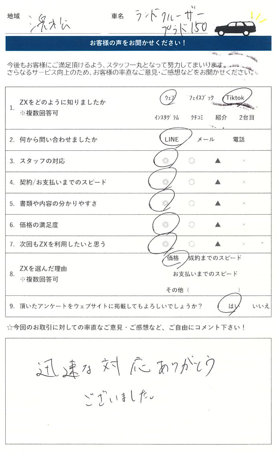 地域 浜松 車名 ランドクルーザープラド150
お客様の声をお聞かせください！
今後もお客様にご満足頂けるよう、スタッフ一丸となって努力してまいります。
さらなるサービス向上のため、お客様の率直なご意見・ご感想などをお聞かせください。
1. ZXをどのように知りましたか ※複数回答可 ウェブ フェイスブック Tiktok
インスタグラム クチコミ 紹介 2台目
2. 何から問い合わせましたか LINE メール 電話
3. スタッフの対応 ◎ ○ ▲ ×
4. 契約/お支払いまでのスピード ◎ ○ ▲ ×
5. 書類や内容の分かりやすさ ◎ ○ ▲ ×
6. 価格の満足度 ◎ ○ ▲ ×
7. 次回もZXを利用したいと思う ◎ ○ ▲ ×
8. ZXを選んだ理由 ※複数回答可 価格 成約までのスピード
お支払いまでのスピード
その他（ ）
9. 頂いたアンケートをウェブサイトに掲載してもよろしいでしょうか？ はい いいえ
☆今回のお取引に対しての率直なご意見・ご感想など、ご自由にコメント下さい！
迅速な対応ありがとう
ございました。